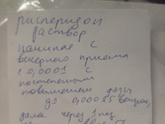 рисперидон
раствор
начиная с
вечернего приема
с 0,0001 с
постепенным
повышением дозы
до 0,00025
через